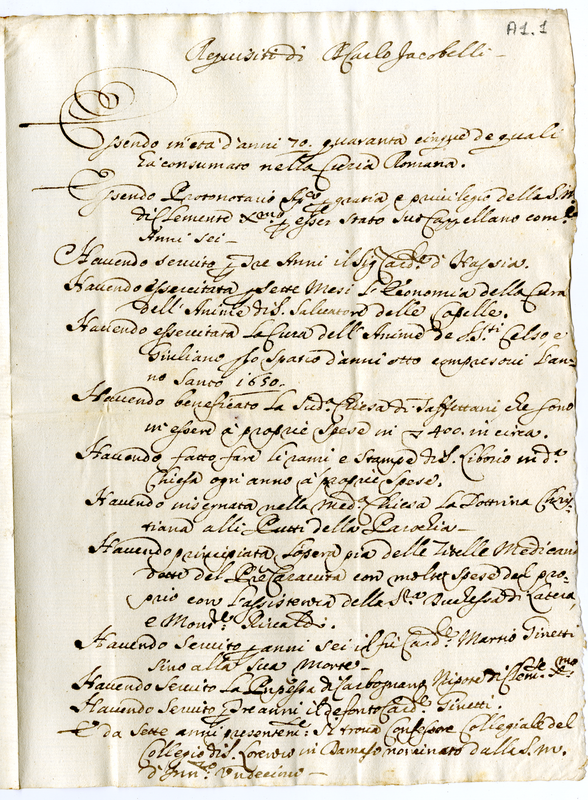 A1.1
Requisiti di Carlo Jacobelli
Essendo in età d'anni 70. quaranta cinque de quali
hà consumato nella Curia Romana.
Essendo Protonotario Ap.co p gratia e privilegio della
di Clemente X.mo p esser stato suo Cappellano com.e
Anni sei
Havendo servito p tre Anni il Sig.r Card.le d'Hassia.
Havendo essercitata p sette Mesi l'Economia della Cura
dell'Anime di S. Salvatore delle Capelle.
Havendo essercitata la Cura dell'Anime de S.S.ti Celso e
Giuliano p lo spatio d'anni otto compresovi l'an-
no Santo 1650.
Havendo beneficato la Sud.a Chiesa di Taffettani che sono
in essere à proprie spese in 400. in circa.
Havendo fatto fare li rami e stampe di S. Liborio in d.a
Chiesa ogni anno à proprie spese.
Havendo insegnata nella med.a Chiesa la Dottrina Chris-
tiana alli Putti della Parochia
Havendo principiata l'opera pia delle Zitelle Medicano
dotte del P.re Caravita con molte spese del pro-
prio con l'assistenza della S.ra Duchessa di Latera,
e Mons.re Rinaldi.
Havendo servito p anni sei il fù Card.le Martio Ginetti
sino alla sua morte
Havendo servito la Pnpessa di Carbognano Nipote di Clem.te X.mo
Havendo servito p tre anni il defonto Card.le Ginetti.
E da sette anni presentem.te si trova Confessore Collegiale del
Collegio di S. Lorenzo in Damaso nominato dalla S.m.
d'Inn.zo Undecimo